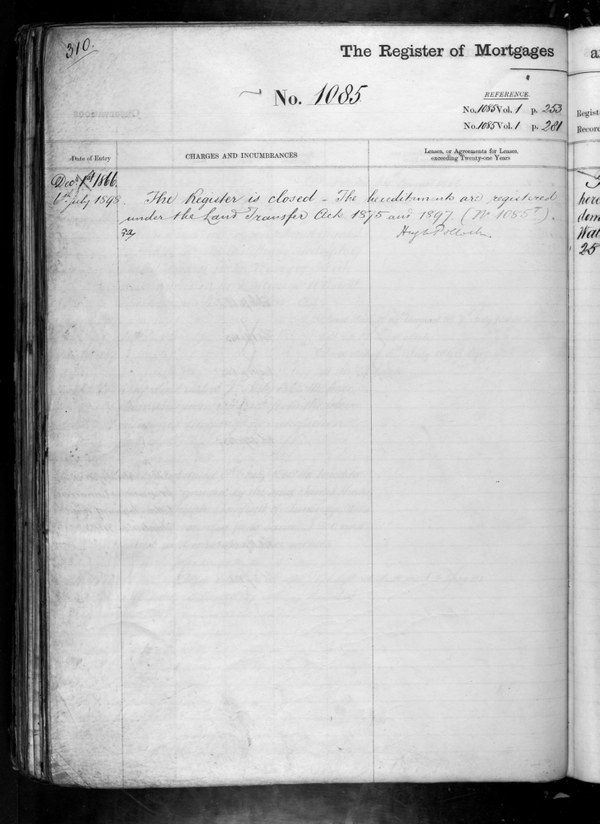 310.
The Register of Mortgages
No. 1085
REFERENCE.
No. 1085 Vol. 1 p. 253
No. 1085 Vol. 1 p. 281
Date of Entry
CHARGES AND INCUMBRANCES
Leases, or Agreements for Leases, exceeding Twenty-one Years
Decr 1st 1866.
6th July 1898
The Register is closed - The hereditaments are registered
under the Land Transfer Acts 1875 and 1897. (No 1085
Hugh Pollock.
Regist
Record
here
dem
Wat
25